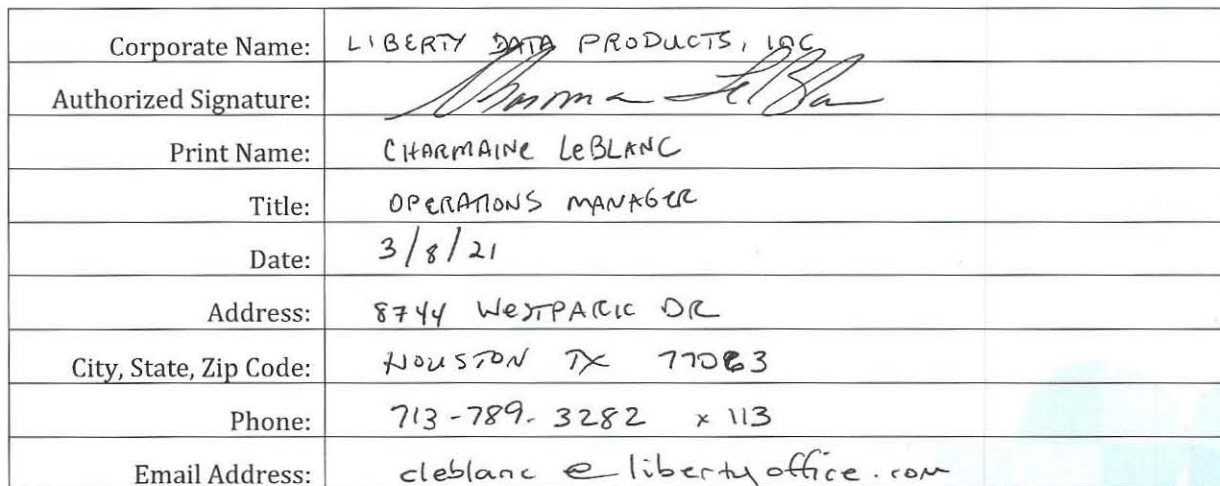 Corporate Name: LIBERTY DATA PRODUCTS, INC
Authorized Signature: Charma LeBla
Print Name: CHARMAINE LEBLANC
Title: OPERATIONS MANAGER
Date: 3/8/21
Address: 8744 WESTPARK DR
City, State, Zip Code: HOUSTON TX 77063
Phone: 713-789-3282 x 113
Email Address: cleblanc@libertyoffice.com